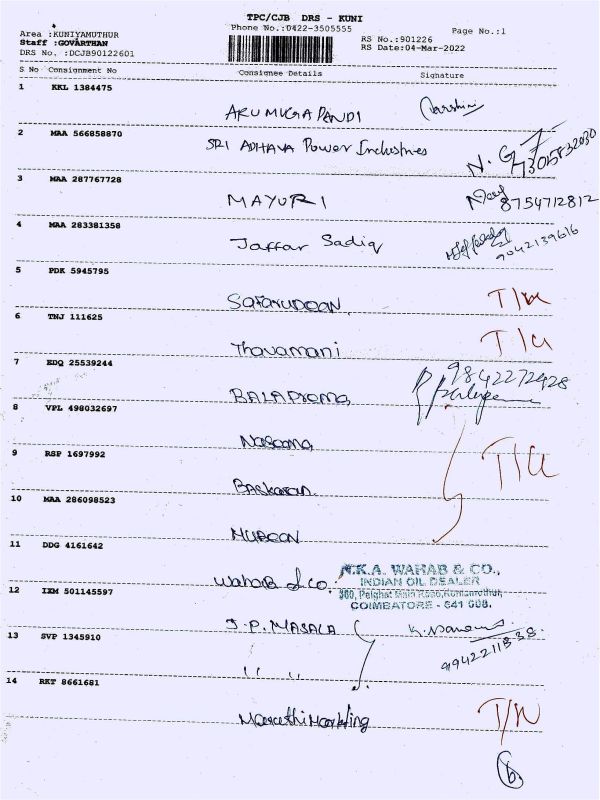 TPC/CJB DRS - KUNI
Phone No.:0422-3505555
Page No.:1
Area :KUNIYAMUTHUR
Staff :GOVARTHAN
DRS No. :DCJB90122601
RS No.:901226
RS Date:04-Mar-2022
S No Consignment No Consignee Details Signature
1 KKL 1384475
ARUMUGA PANDI
2 MAA 566858870
SRI ADHAVA Power Industries
N. G
7305832030
3 MAA 287767728
MAYURI
8754712812
4 MAA 283381358
Jaffar Sadiq
9042139616
5 PDK 5945795
6 TNJ 111625
Thavamani
7 EDQ 25539244
9842272428
BALAPrema
8 VPL 498032697
9 RSP 1697992
Baskaran
10 MAA 286098523
11 DDG 4161642
Wahab & Co.
N.K.A. WAHAB & CO.,
INDIAN OIL DEALER
360, Palghat Main Road, Kuniamuthur,
COIMBATORE - 641 008.
12 IXM 501145597
J.P. MASALA
13 SVP 1345910
" "
9942211838
14 RKT 8661681
6